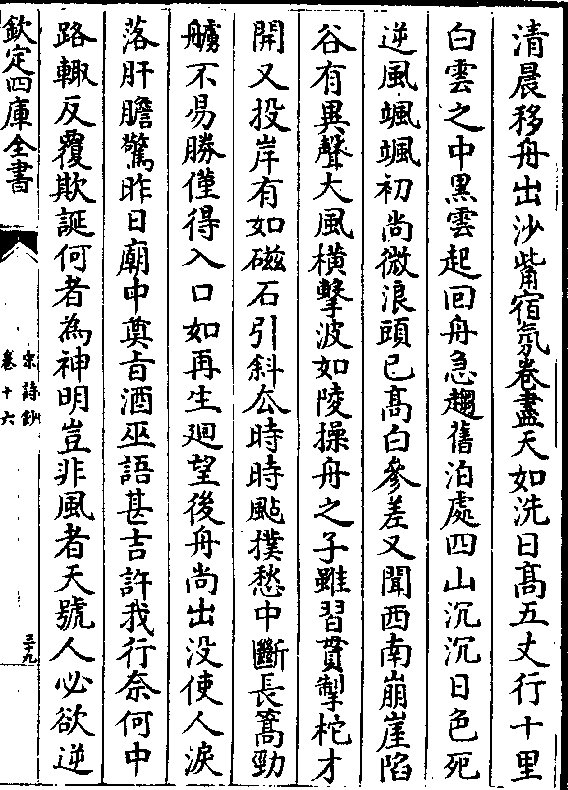 清晨移舟出沙觜宿氛卷盡天如洗日髙五丈行十里
白雲之中黒雲起回舟急趨舊泊處四山沉沉日色死
逆風颯颯初尚微浪頭已髙白參差又聞西南崩崖陷
谷有異聲大風橫擊波如陵操舟之子雖習貫掣柁才
開又投岸有如磁石引斜公時時颭撲愁中斷長篙勁
艣不易勝僅得入口如再生廻望後舟尚出没使人淚
落肝膽驚昨日廟中奠旨酒巫語甚吉許我行奈何中
路輙反覆欺誕何者為神明豈非風者天號人必欲逆
欽定四庫全書
宋詩鈔
卷十六
三十九